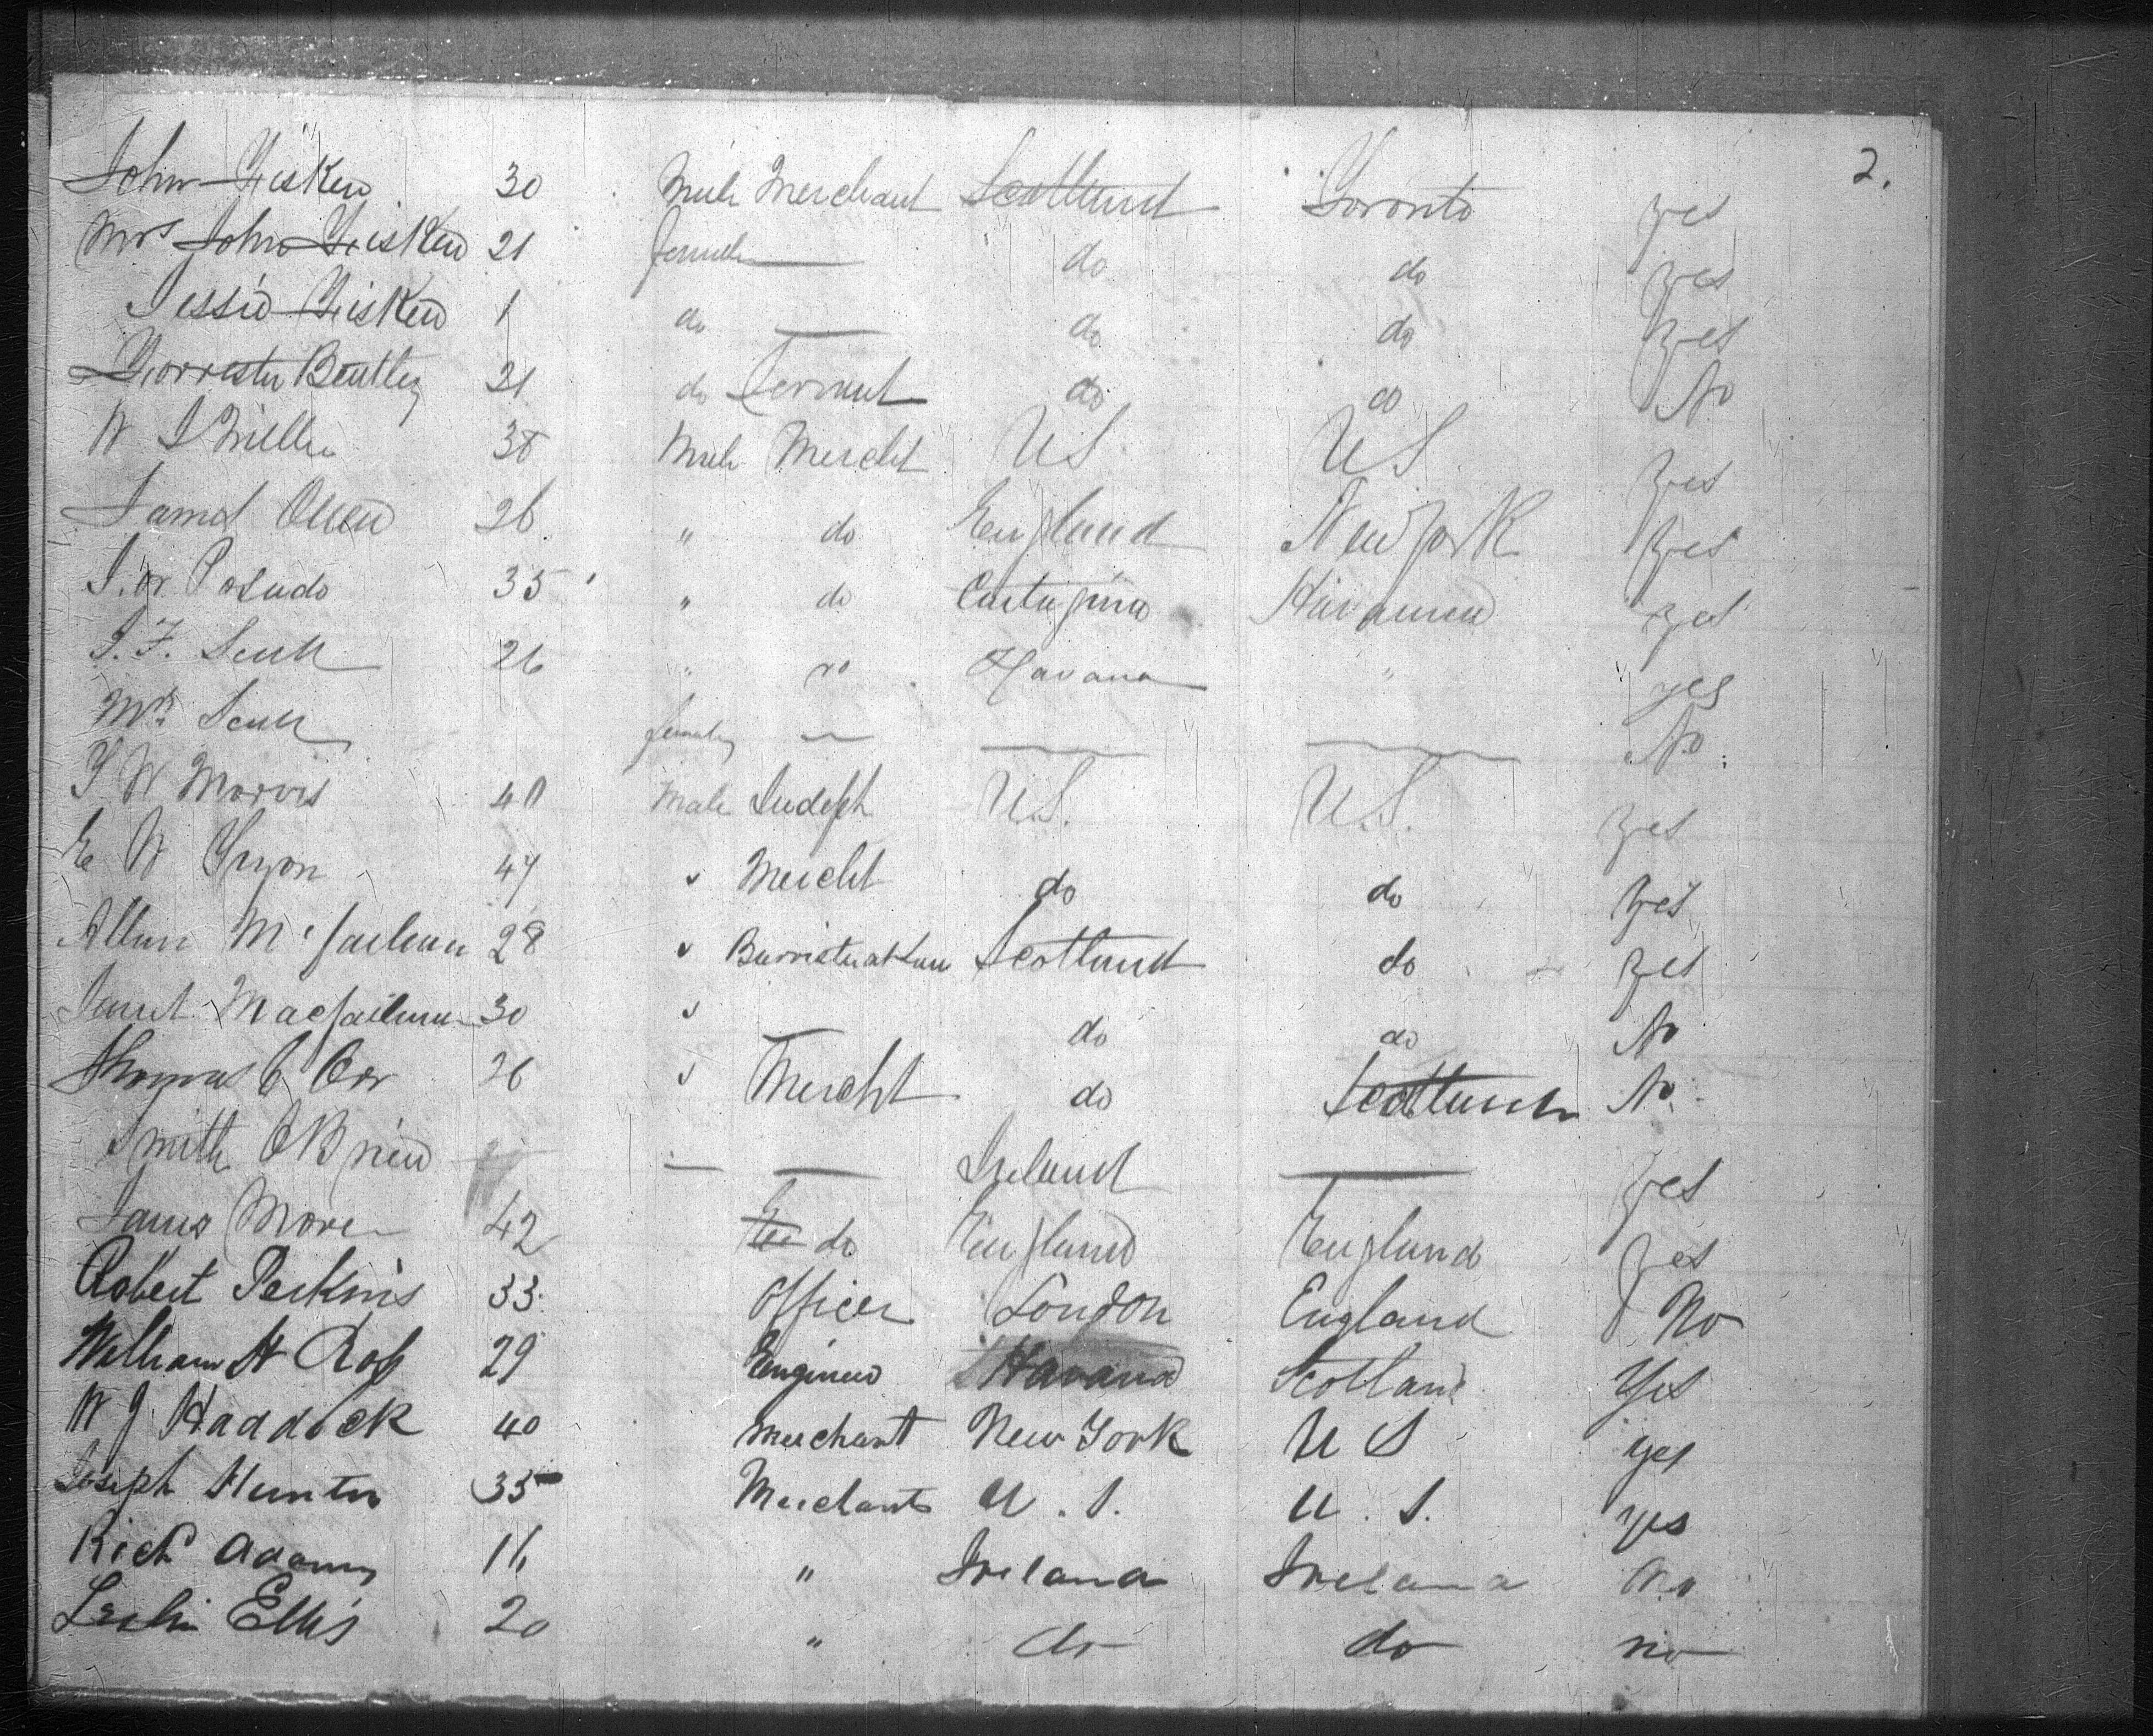 2.
John Fisken 30 Male Merchant Scotland Toronto yes
Mrs John Fisken 21 female — do do yes
Jessie Fisken 1 do — do do yes
Forrester Bentley 21 do Servant do do No
W S Miller 38 Male Mercht US US yes
James Owen 26 " do England New York yes
J. Posado 35 " do Cartagina Havanna yes
J. F. Scull 26 " do Havana " yes
Mrs Scull female — — — No
T W Morris 40 Male U.S. U.S. yes
E W Tryon 47 " Mercht do do yes
Allan McFarlane 28 " Barrister at Law Scotland do yes
Janet Macfarlane 30 " do do No
Thomas C Orr 26 " Mercht do Scotland No
Smith OBrien — — Ireland — yes
James More 42 do England England yes
Robert Perkins 33 Officer London England No
William H Ross 29 Engineer Havana Scotland Yes
W J Haddock 40 Merchant New York U S yes
Joseph Hunter 35 Merchant U. S. U. S. yes
Richd Adams 16 " Ireland Ireland No
Leslie Ellis 20 " do do no